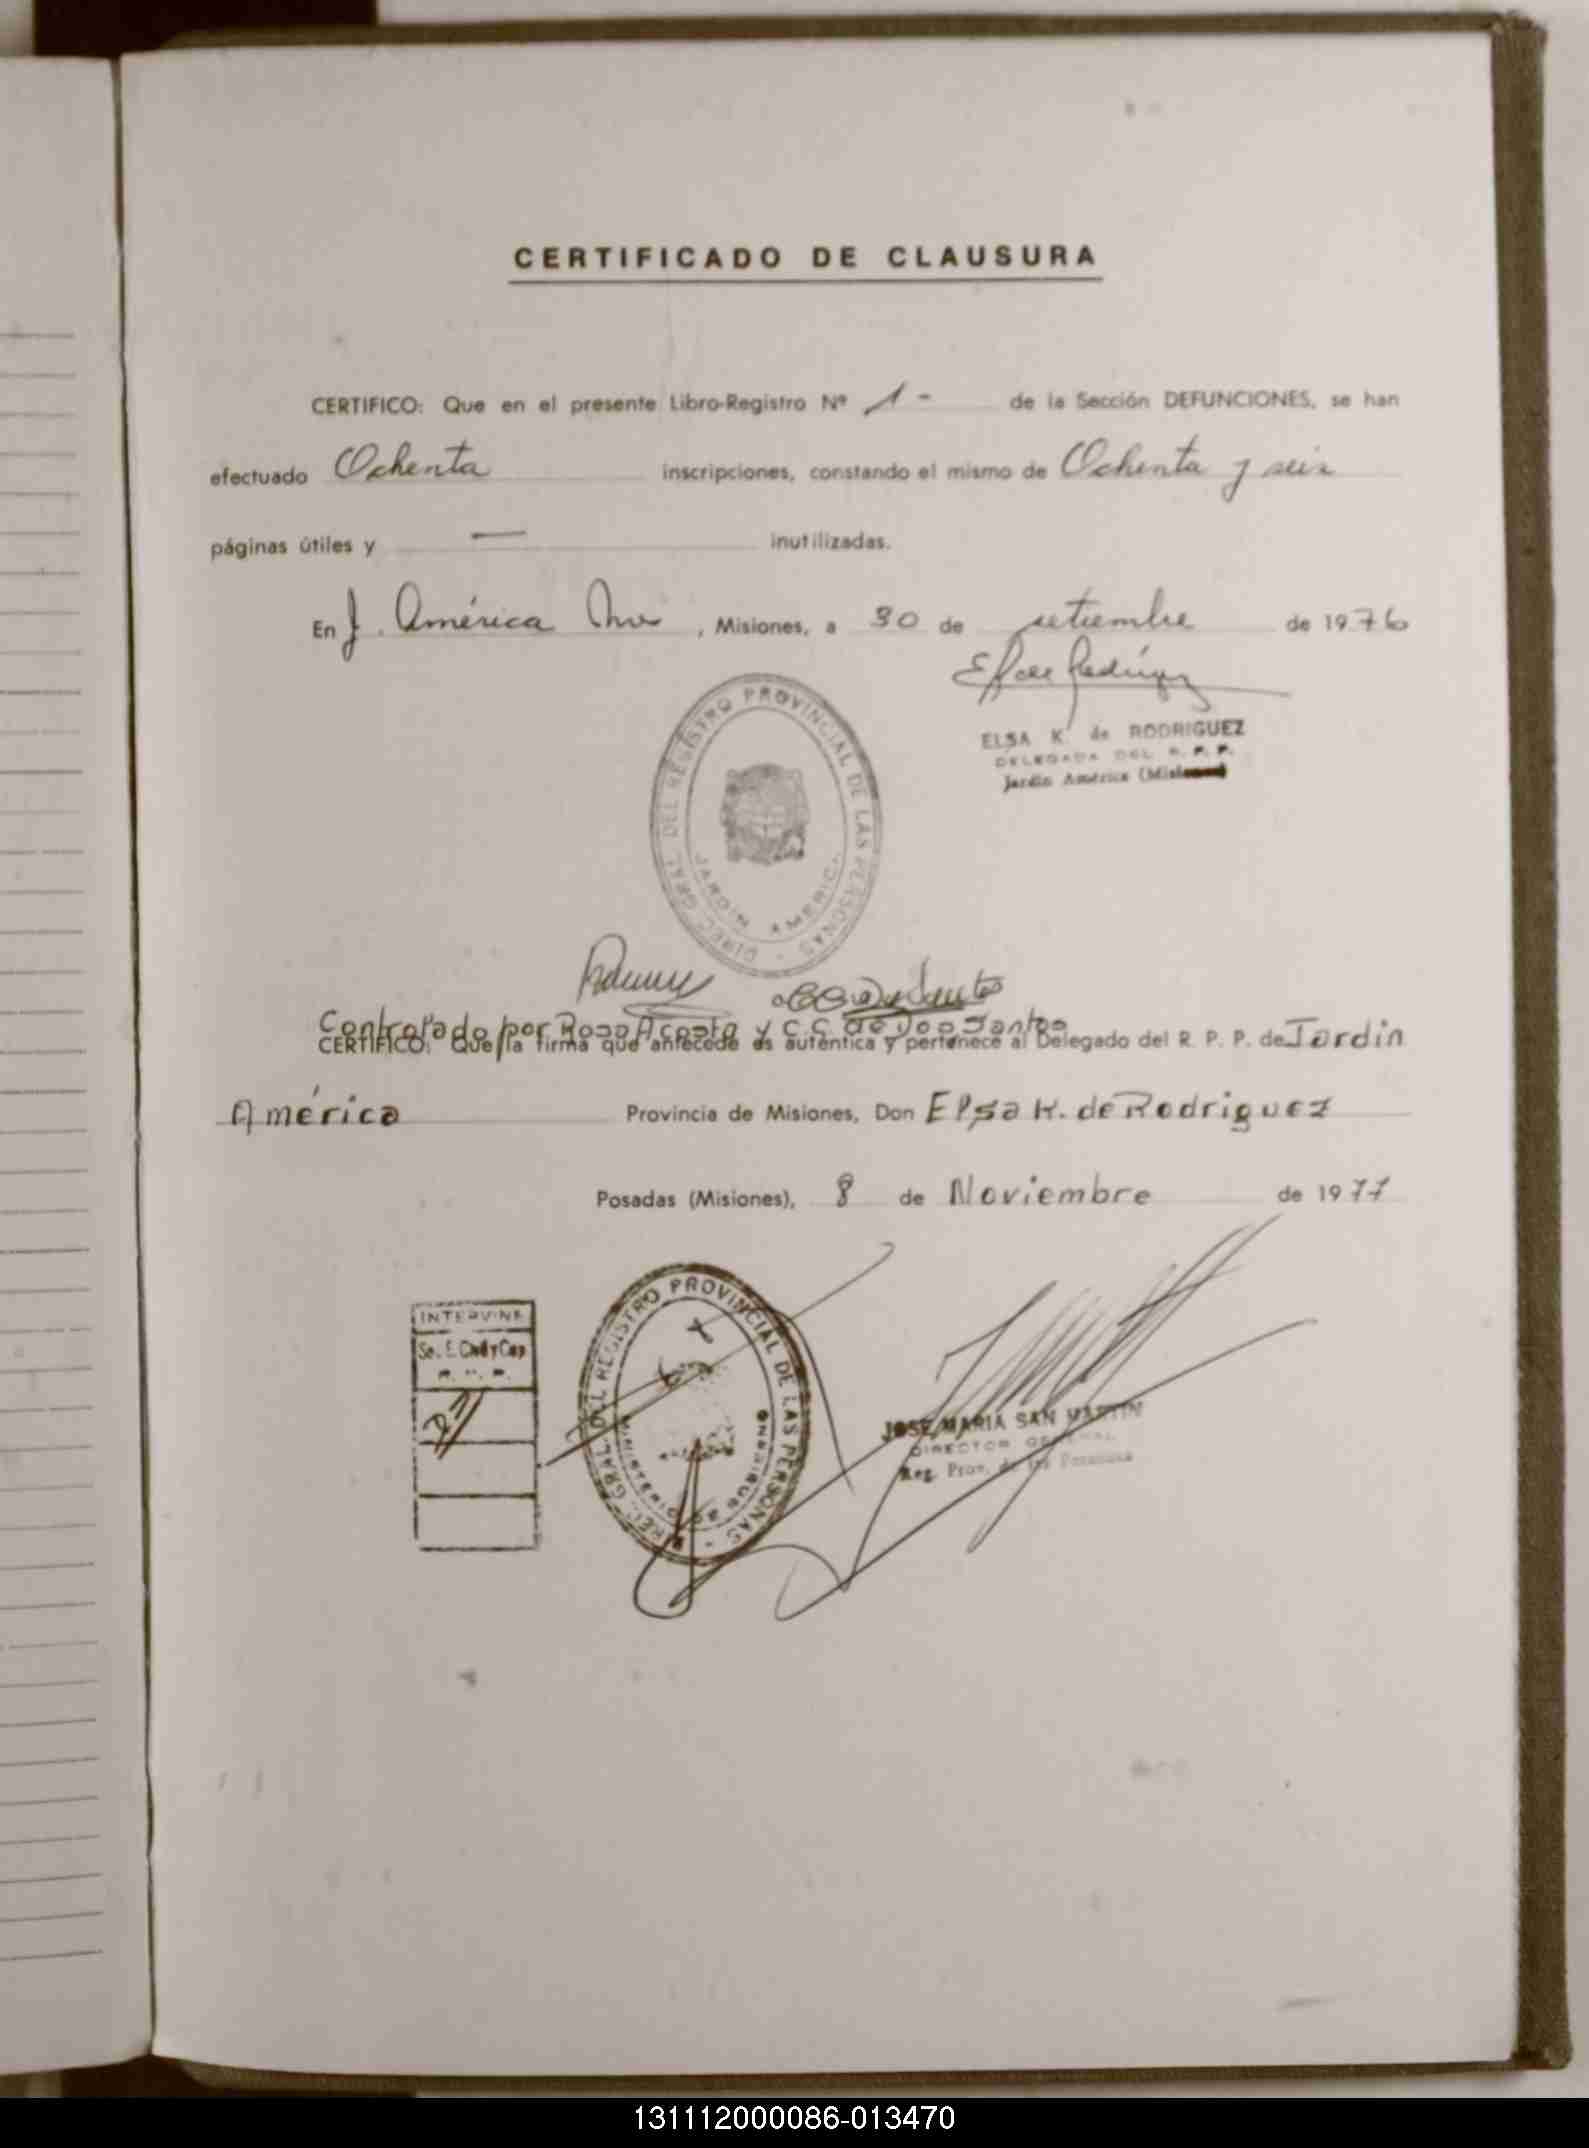 CERTIFICADO DE CLAUSURA
CERTIFICO: Que en el presente Libro-Registro Nº 1 - de la Sección DEFUNCIONES, se han
efectuado Ochenta inscripciones, constando el mismo de Ochenta y seis
páginas útiles y — inutilizadas.
En J. América Mnes , Misiones, a 30 de setiembre de 1976
ELSA K. de RODRIGUEZ
DELEGADA DEL R. P. P.
Jardín América (Misiones)
DIREC. GRAL. DEL REGISTRO PROVINCIAL DE LAS PERSONAS
JARDIN AMERICA
Controlado por Rosa Acosta y C.C. de Dos Santos
CERTIFICO: Que la firma que antecede es auténtica y pertenece al Delegado del R. P. P. de Jardín
América Provincia de Misiones, Don Elsa K. de Rodriguez
Posadas (Misiones), 8 de Noviembre de 1977
INTERVINE
Se. E. Civil y Cap
R. P. P.
DIREC. GRAL. DEL REGISTRO PROVINCIAL DE LAS PERSONAS
MINISTERIO DE GOBIERNO
JOSE MARIA SAN MARTIN
DIRECTOR GENERAL
Reg. Prov. de las Personas
131112000086-013470